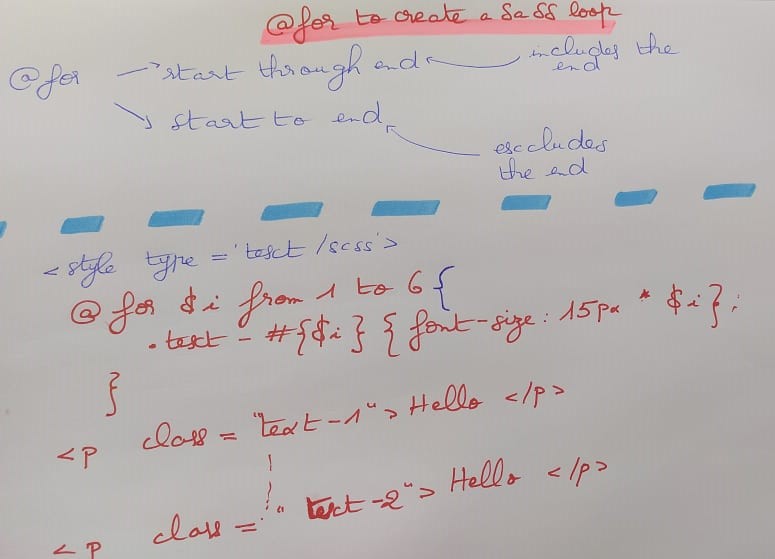 @for to create a SaSS loop
@for → start through end ← includes the end
↘ start to end ← excludes the end
<style type='text/scss'>
@for $i from 1 to 6 {
.text-#{$i} { font-size: 15px * $i };
}
<p class="text-1"> Hello </p>
<p class="text-2"> Hello </p>